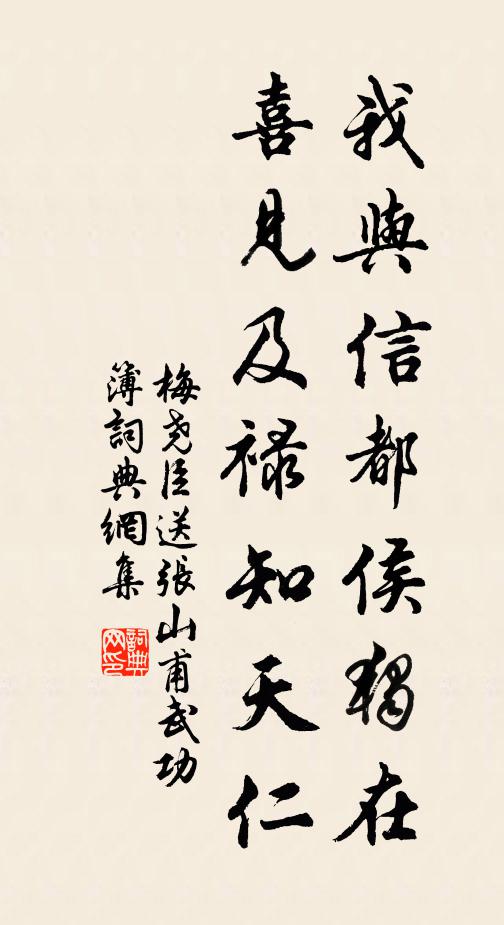 我與信都侯獨在
喜見及祿知天仁
梅堯臣送張山甫武功
簿詞典網集
詞典
网印